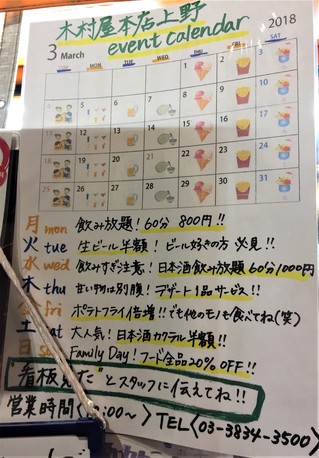 木村屋本店上野
event calendar
3 March 2018
SUN MON TUE WED THU FRI SAT
1 2 3
4 5 6 7 8 9 10
11 12 13 14 15 16 17
18 19 20 21 22 23 24
25 26 27 28 29 30 31
月 mon 飲み放題！60分 800円!!
火 tue 生ビール半額！ビール好きの方 必見!!
水 wed 飲みすぎ注意！日本酒飲み放題60分1000円
木 thu 甘い物は別腹！デザート1品サービス!!
金 fri ポテトフライ倍増!!でも他のモノも食べてね(笑)
土 sat 大人気！日本酒カクテル半額!!
日 Family Day！フード全品20% OFF!!
"看板見た"とスタッフに伝えてね!!
営業時間 :00～> TEL<03-3834-3500>